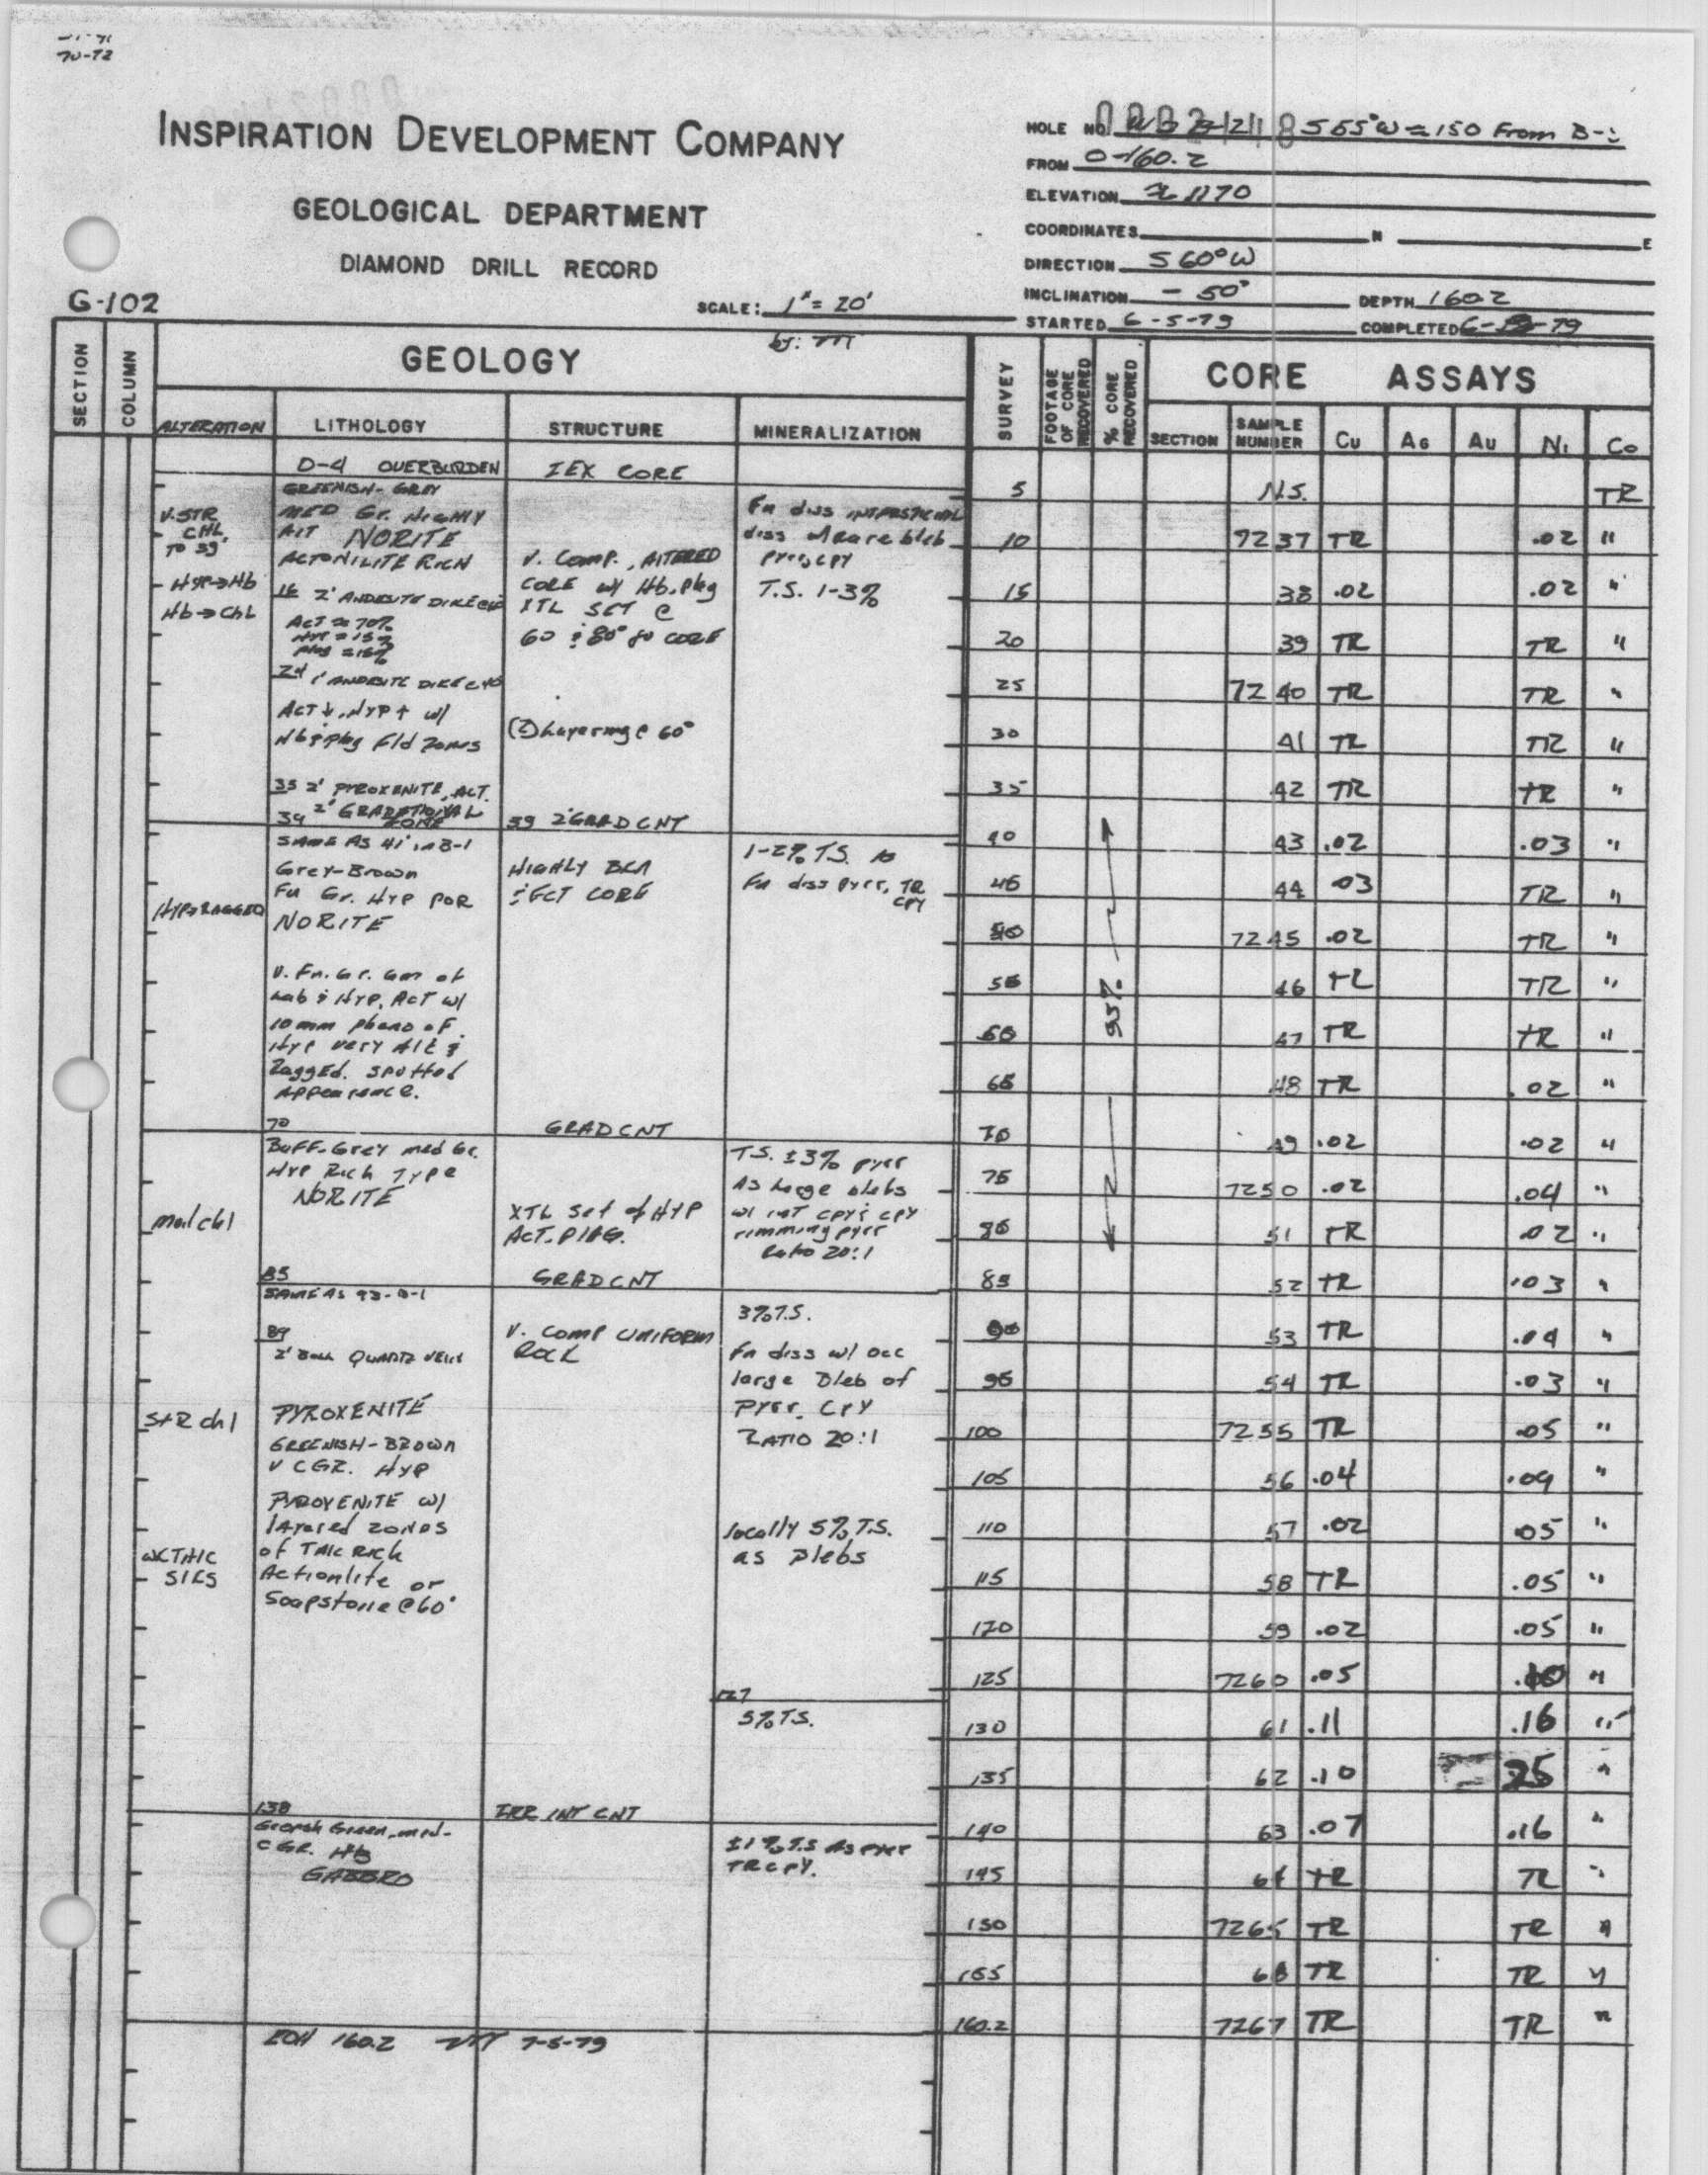 70-72
INSPIRATION DEVELOPMENT COMPANY
GEOLOGICAL DEPARTMENT
DIAMOND DRILL RECORD
G-102
SCALE: 1"= 20'
HOLE NO. S 65°W ≈ 150 From B-
FROM 0-160.2
ELEVATION ≈ 1170
COORDINATES N E
DIRECTION S 60°W
INCLINATION - 50° DEPTH 160.2
STARTED 6-5-79 COMPLETED 6- -79
SECTION
COLUMN
GEOLOGY
by:
ALTERATION LITHOLOGY STRUCTURE MINERALIZATION
SURVEY
FOOTAGE OF CORE RECOVERED
% CORE RECOVERED
CORE ASSAYS
SECTION SAMPLE NUMBER Cu AG AU Ni Co
0-4 OVERBURDEN IEX CORE
V.STR
CHL.
TO 39
Hyp→Hb
Hb→ChL
GREENISH-GREY
MED Gr. HIGHLY
Alt NORITE
ACTONILITE RICH
16 2' ANDESITE DIKE
ACT ≈ 70%
Hyp = 15%
plag = 15%
24 1' ANDESITE DIKE
ACT↓, HYP↑ w/
Hb & plag Fld zones
35 2' PYROXENITE, ACT.
39 2' GRADATIONAL ZONE
V. Comp., ALTERED
CORE w/ Hb, plag
XTL SET @
60 & 80° to CORE
(?) Layering @ 60°
39 2' GRAD CNT
Fn diss INTERSTICIAL
diss w/ rare bleb
pyrr, cpy
T.S. 1-3%
SAME AS 41' in B-1
Grey-Brown
Fn Gr. Hyp POR
NORITE
HYP RAGGED
HIGHLY BKN
& FCT CORE
1-2% T.S. as
Fn diss pyrr, TR
CPY
V. Fn. Gr. Gm of
Lab & Hyp, Act w/
10 mm pheno of
Hyp very Alt &
Ragged. Spotted
Appearence.
95%
70 GRAD CNT
Buff-Grey med Gr.
Hyp Rich Type
NORITE
mod chl
XTL Set of HYP
ACT. PlAG.
T.S. ±3% pyrr
As large blebs
w/ int cpy & cpy
rimming pyrr
Ratio 20:1
85 GRAD CNT
SAME AS 93-B-1
89
2' Bull QUARTZ VEIN
V. Comp UNIFORM
ROCK
3% T.S.
Fn diss w/ occ
large Bleb of
Pyrr, Cpy
RATIO 20:1
STR chl
PYROXENITE
GREENISH-BROWN
V CGR. Hyp
PYROXENITE w/
layered zones
of TALC Rich
Actionlite or
Soapstone @ 60°
locally 5% T.S.
as blebs
127
5% T.S.
138 IRR INT CNT
Green, med-
CGR. Hb
GABBRO
±1% T.S As pyrr
TR CPY.
EOH 160.2 7-5-79
5 N.S. TR
10 7237 TR .02 "
15 38 .02 .02 "
20 39 TR TR "
25 7240 TR TR "
30 41 TR TR "
35 42 TR TR "
40 43 .02 .03 "
45 44 .03 TR "
50 7245 .02 TR "
55 46 TR TR "
60 47 TR TR "
65 48 TR .02 "
70 49 .02 .02 "
75 7250 .02 .04 "
80 51 TR .02 "
85 52 TR .03 "
90 53 TR .04 "
95 54 TR .03 "
100 7255 TR .05 "
105 56 .04 .09 "
110 57 .02 .05 "
115 58 TR .05 "
120 59 .02 .05 "
125 7260 .05 .10 "
130 61 .11 .16 "
135 62 .10 .25 "
140 63 .07 .16 "
145 64 TR TR "
150 7265 TR TR "
155 66 TR TR "
160.2 7267 TR TR "